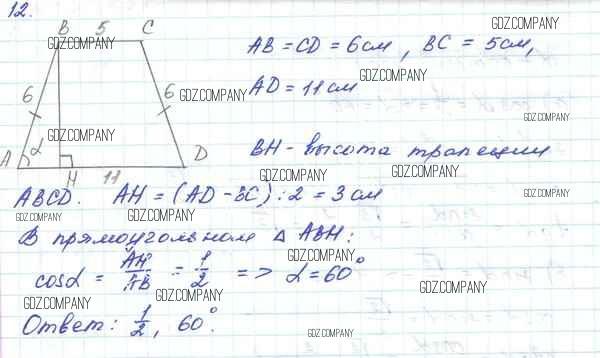 12.
B 5 C
GDZ.COMPANY
GDZ.COMPANY
AB = CD = 6 см, BC = 5 см,
GDZ.COMPANY
6 6
GDZ.COMPANY
AD = 11 см
GDZ.COMPANY
GDZ.COMPANY
A α H 11 D
BH - высота трапеции
GDZ.COMPANY
GDZ.COMPANY
GDZ.COMPANY
ABCD. AH = (AD - BC) : 2 = 3 см
GDZ.COMPANY
GDZ.COMPANY
GDZ.COMPANY
В прямоугольном △ ABH:
GDZ.COMPANY
cosα = AH/AB = 1/2 => α = 60°
GDZ.COMPANY
GDZ.COMPANY
GDZ.COMPANY
Ответ: 1/2, 60°.
GDZ.COMPANY